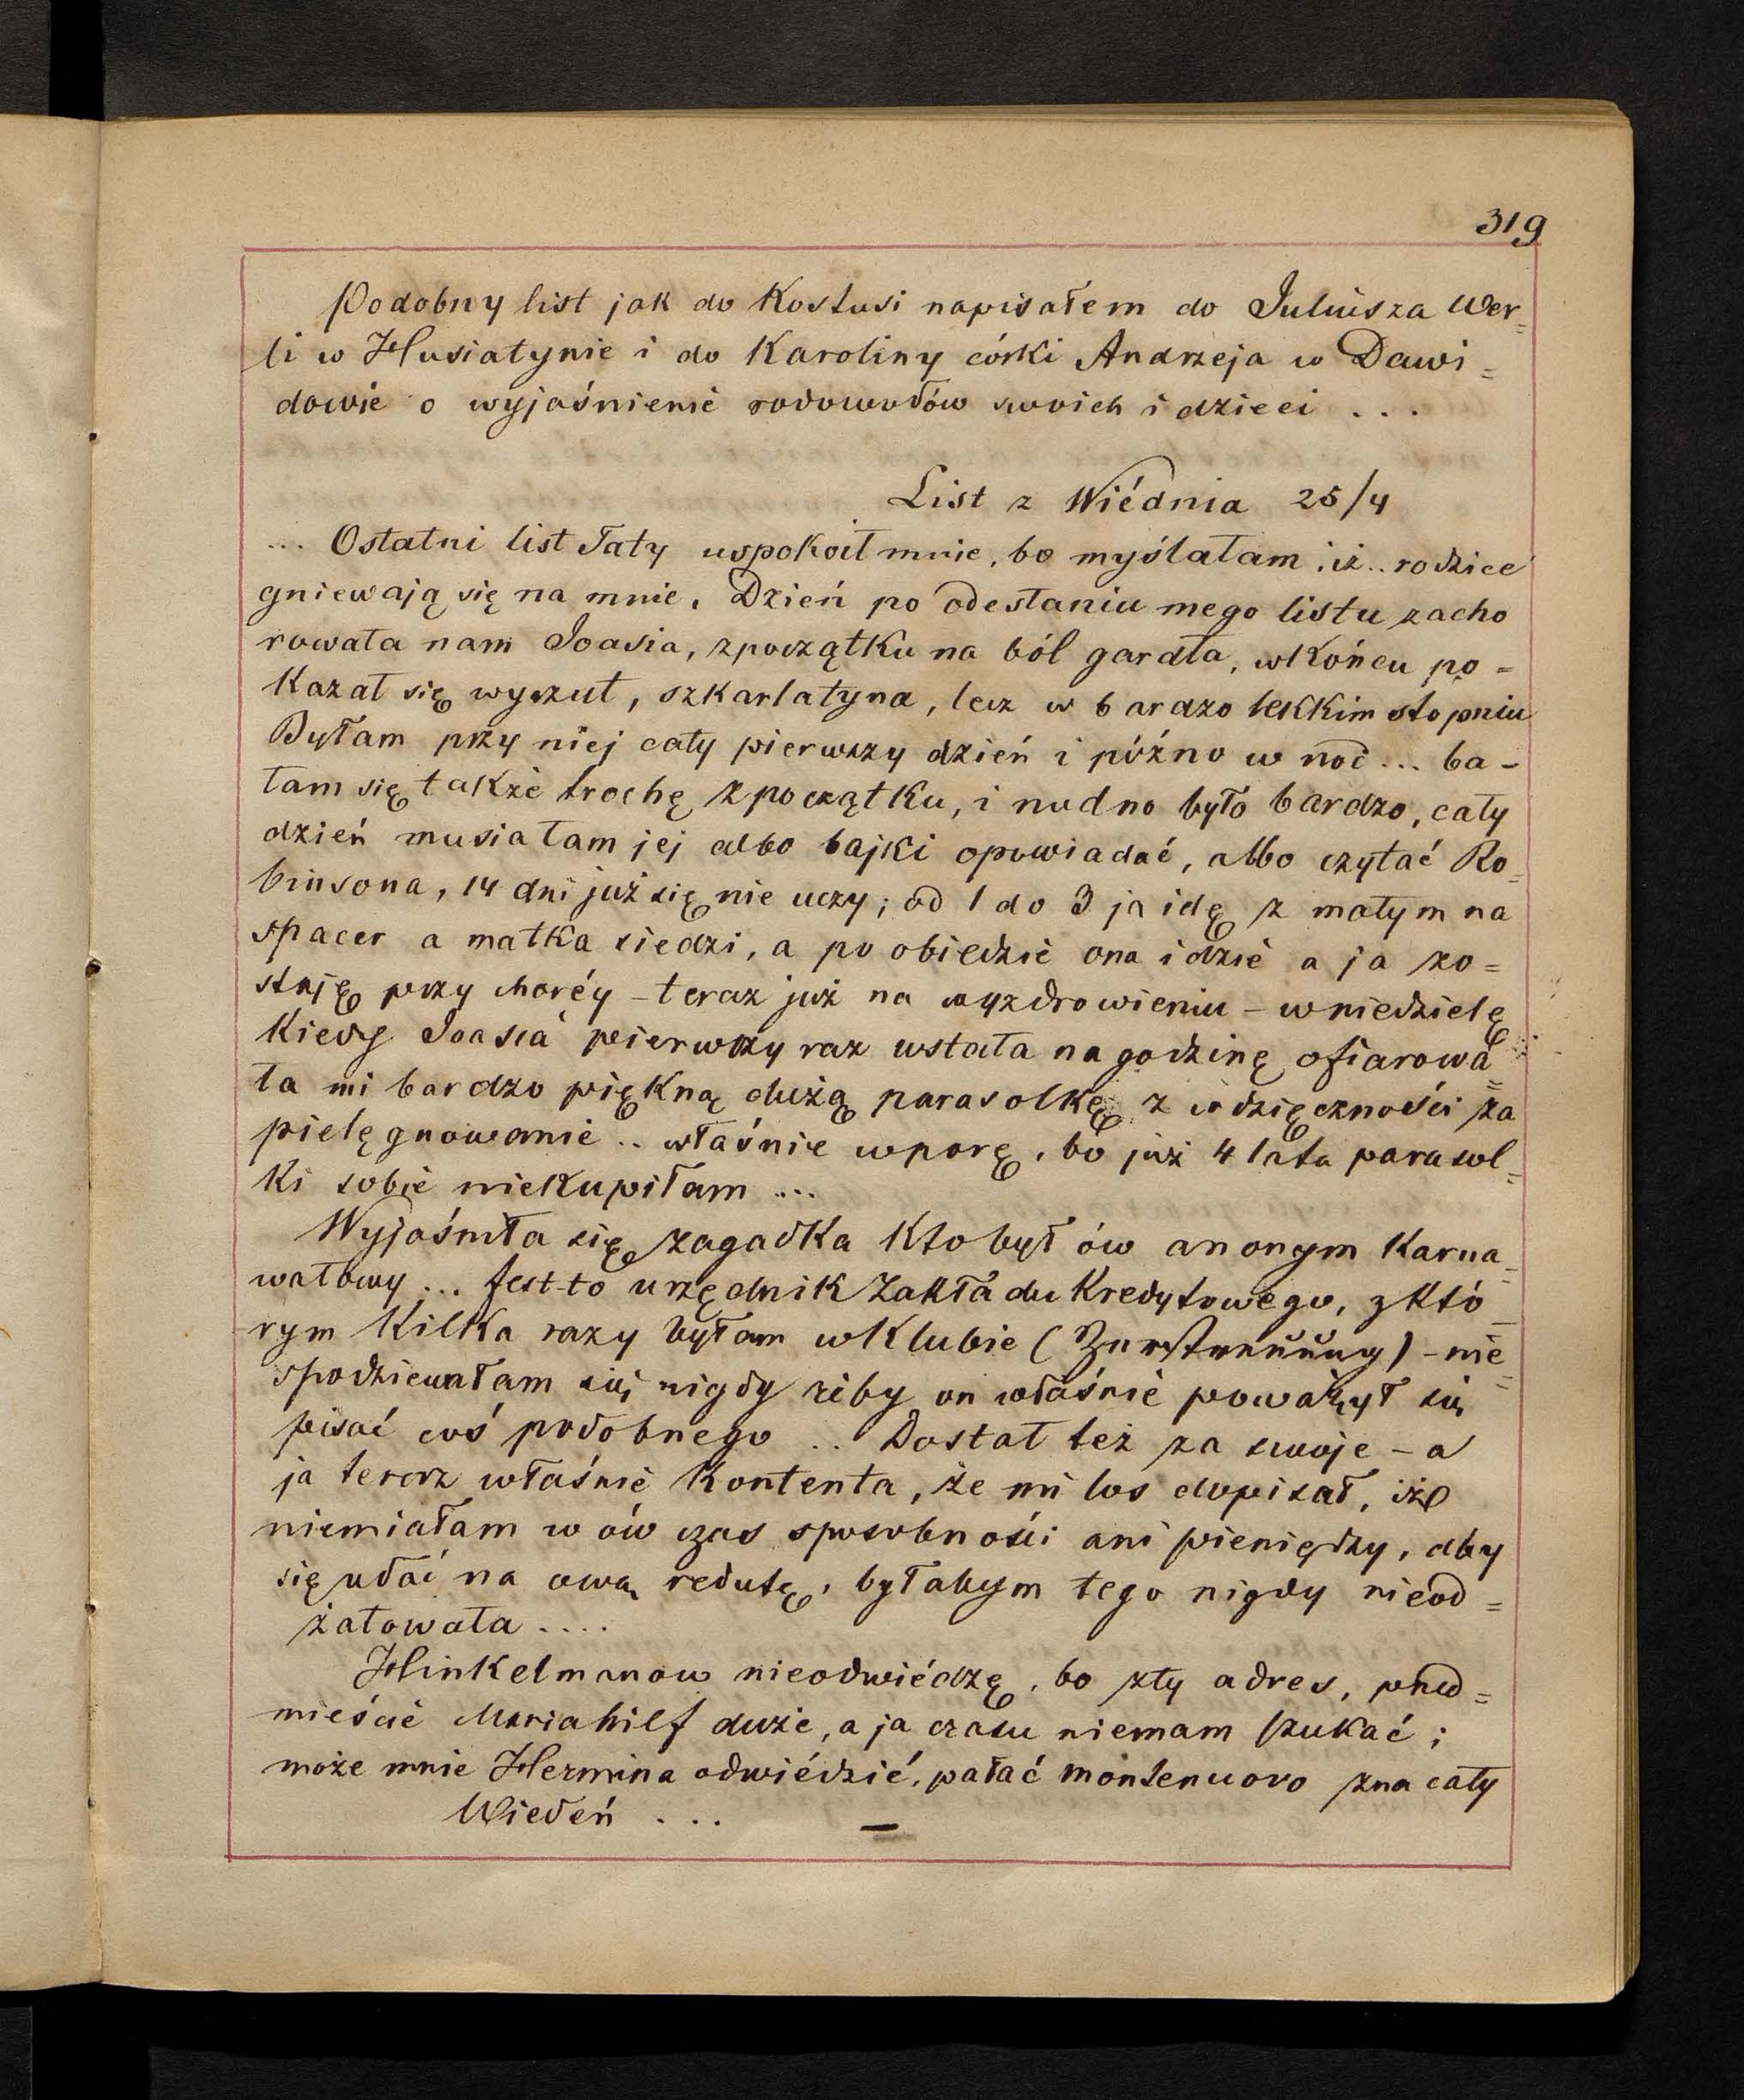 319
Podobny list jak do Kostusi napisałem do Juliusza Wer=
li w Husiatynie i do Karoliny córki Andrzeja w Dawi=
dowie o wyjaśnienie rodowodów swoich i dzieci . . .
List z Wiédnia 25/4
... Ostatni list Taty uspokoił mnie, bo myślałam, iż .. rodzice
gniewają się na mnie. Dzień po odesłaniu mego listu zacho
rowała nam Joasia, zpoczątku na ból gardła, wkońcu po=
kazał się wyrzut, szkarlatyna, lecz w bardzo lekkim stopniu
Byłam przy niej cały pierwszy dzień i późno w noc ... ba-
łam się także trochę zpoczątku, i nudno było bardzo, cały
dzień musiałam jej albo bajki opowiadać, albo czytać Ro=
binsona, 14 dni już się nie uczy; od 1 do 3 ja idę z małym na
spacer a matka siedzi, a po obiedzie ona idzie a ja zo=
staję przy choréy - teraz już na wyzdrowieniu - wniedzielę
kiedy Joasia pierwszy raz wstała na godzinę ofiarowa=
ła mi bardzo piękną dużą parasolkę z wdzięczności za
pielęgnowanie .. właśnie wporę, bo już 4 lata parasol=
ki sobie niekupiłam ...
Wyjaśniła się zagadka kto był ów anonym karna=
wałowy ... Jest-to urzędnik Zakładu Kredytowego, zktó_
rym kilka razy byłam wklubie ( ) - nie=
spodziewałam się nigdy żeby on właśnie poważył się
pisać coś podobnego .. Dostał też za swoje - a
ja teraz właśnie kontenta, że mi los dopisał, iże
niemiałam w ów czas sposobności ani pieniędzy, aby
się udać na ową redutę, byłabym tego nigdy nieod=
żałowała ....
Hinkelmanow nieodwiédzę, bo zły adres, przed=
mieście Mariahilf duże, a ja czasu niemam szukać;
może mnie Hermina odwiédzić, pałać Montenuovo zna cały
Wiedeń . . . —